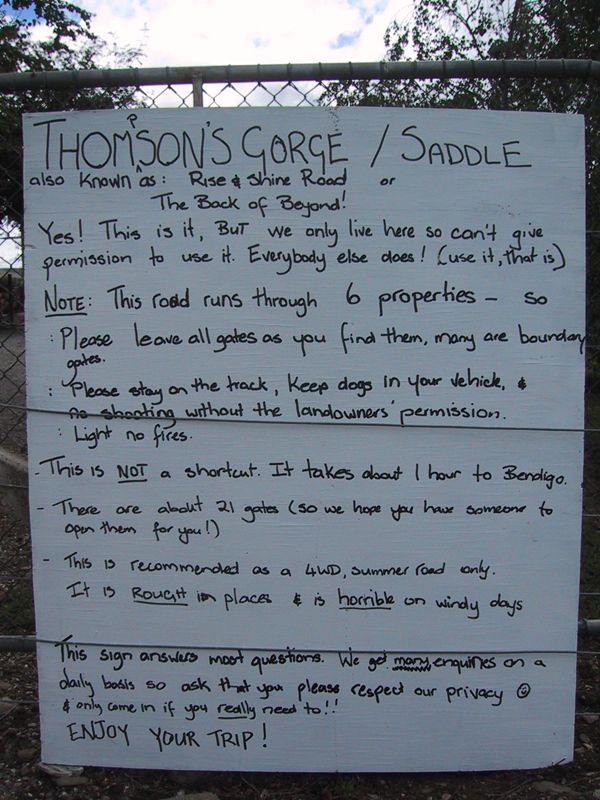 THOMPSON'S GORGE / SADDLE
also known as: Rise & Shine Road or
The Back of Beyond!
Yes! This is it, BUT we only live here so can't give
permission to use it. Everybody else does! (use it, that is)
NOTE: This road runs through 6 properties – so
: Please leave all gates as you find them, many are boundary
gates.
: Please stay on the track, keep dogs in your vehicle, &
no shooting without the landowners' permission.
: Light no fires.
- This is NOT a shortcut. It takes about 1 hour to Bendigo.
- There are about 21 gates (so we hope you have someone to
open them for you!)
- This is recommended as a 4WD, summer road only.
It is ROUGH in places & is horrible on windy days
This sign answers most questions. We get many enquiries on a
daily basis so ask that you please respect our privacy ☺
& only come in if you really need to!!
ENJOY YOUR TRIP!